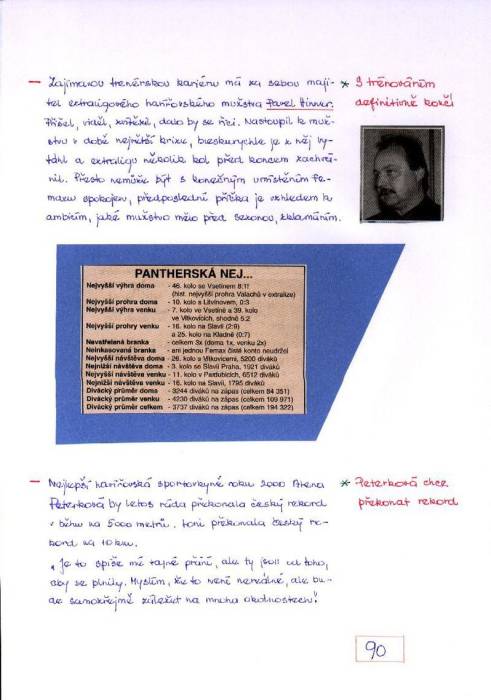 - Zajímavou trenérskou kariéru má za sebou maji-
tel extraligového havířovského mužstva Pavel Hinner.
Přišel, viděl, zvítězil, dalo by se říci. Nastoupil k muž-
stvu v době největší krize, bleskurychle je z něj vy-
táhl a extraligu několik kol před koncem zachrá-
nil. Přesto nemůže být s konečným umístěním Fe-
maxu spokojen, předposlední příčka je vzhledem k
ambicím, jaké mužstvo mělo před sezonou, zklamáním.
* S trénováním
definitivně končí
PANTHERSKÁ NEJ...
Nejvyšší výhra doma - 46. kolo se Vsetínem 8:1!
(hist. nejvyšší prohra Valachů v extralize)
Nejvyšší prohra doma - 10. kolo s Litvínovem, 0:3
Nejvyšší výhra venku - 7. kolo ve Vsetíně a 39. kolo
ve Vítkovicích, shodně 5:2
Nejvyšší prohry venku - 16. kolo na Slavii (2:9)
a 25. kolo na Kladně (0:7)
Nevstřelená branka - celkem 3x (doma 1x, venku 2x)
Neinkasovaná branka - ani jednou Femax čisté konto neudržel
Nejvyšší návštěva doma - 26. kolo s Vítkovicemi, 5200 diváků
Nejnižší návštěva doma - 3. kolo se Slavií Praha, 1921 diváků
Nejvyšší návštěva venku - 11. kolo v Pardubicích, 6512 diváků
Nejnižší návštěva venku - 16. kolo na Slavii, 1795 diváků
Divácký průměr doma - 3244 diváků na zápas (celkem 84 351)
Divácký průměr venku - 4230 diváků na zápas (celkem 109 971)
Divácký průměr celkem - 3737 diváků na zápas (celkem 194 322)
- Nejlepší havířovská sportovkyně roku 2000 Alena
Peterková by letos ráda překonala český rekord
v běhu na 5000 metrů. Loni překonala český re-
kord na 10 km.
„Je to spíše mé tajné přání, ale ty jsou od toho,
aby se plnily. Myslím, že to není nereálné, ale bu-
de samozřejmě záležet na mnoha okolnostech."
* Peterková chce
překonat rekord
90